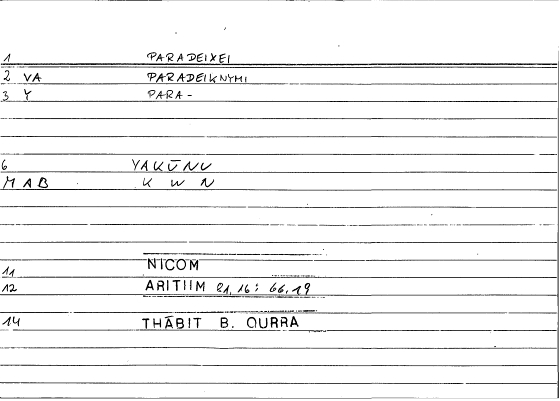 1 PARADEIXEI
2 VA PARADEIKNYMI
3 Y PARA-
6 YAKŪNU
MAB K W N
11 NICOM
12 ARITIIM 21,16 : 66,19
14 THĀBIT B. QURRA